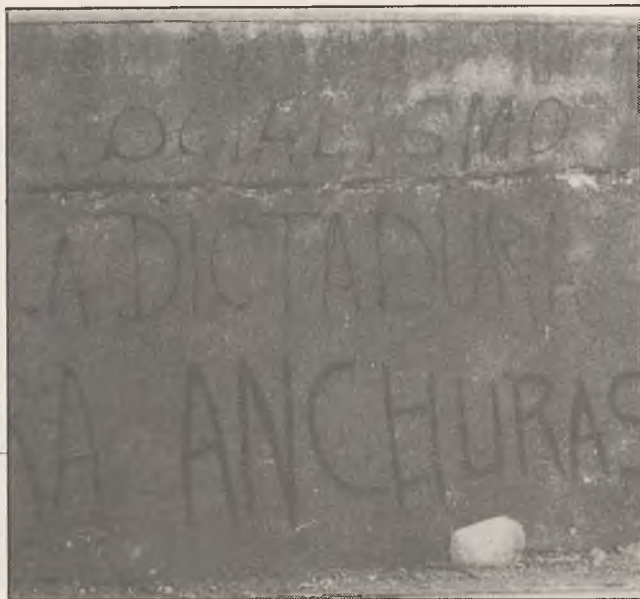 SOCIALISMO
LA DICTADURA
ANCHURAS